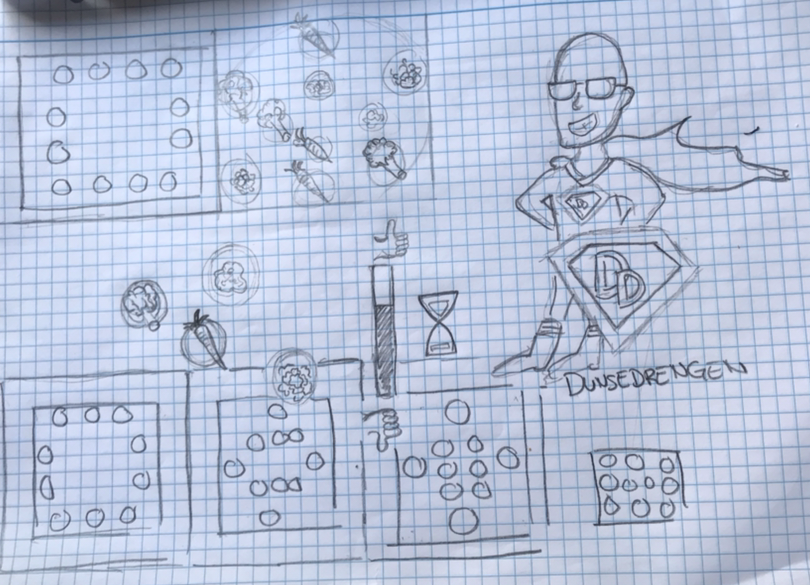 DD
DD
DUNSEDRENGEN